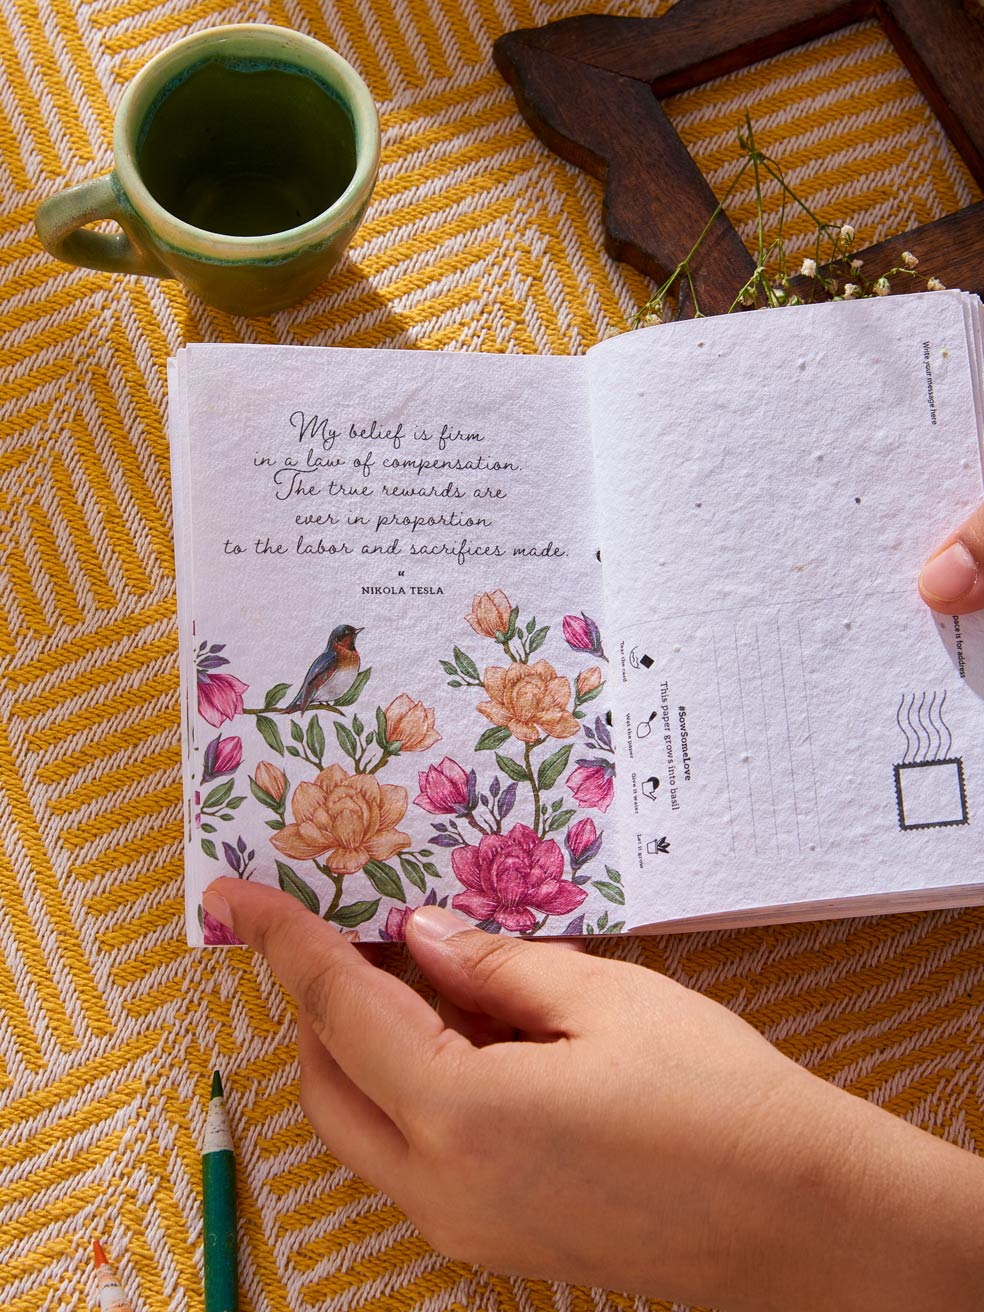 My belief is firm
in a law of compensation.
The true rewards are
ever in proportion
to the labor and sacrifices made.
“
NIKOLA TESLA
Write your message here
is for address
#SowSomeLove
This paper grows into basil
Tear the card
Wet the paper
Give it water
Let it grow